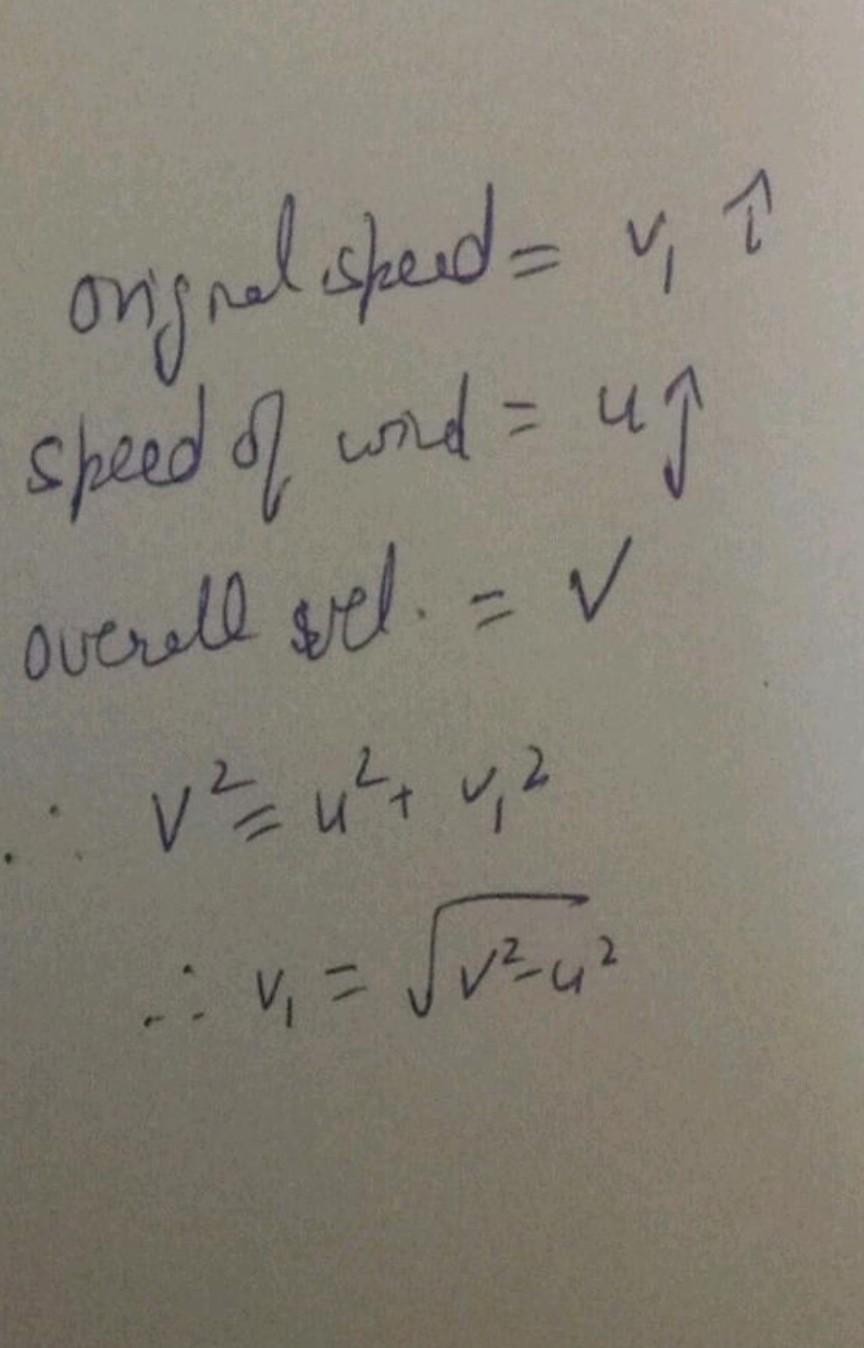 original speed = v₁ ↑
speed of wind = u ↕
overall vel. = V
∴ V² = u² + v₁²
∴ v₁ = √(v² - u²)